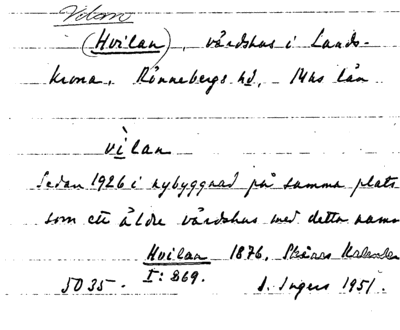 Vilan
(Hvilan), värdshus i Lands-
krona, Rönnebergs hd, Mhs län
vìlan
Sedan 1926 i nybyggnad på samma plats
som ett äldre värdshus med detta namn
Hvilan 1876, Skånes Kalender
I: 869.
5035. I. Ingers 1951.